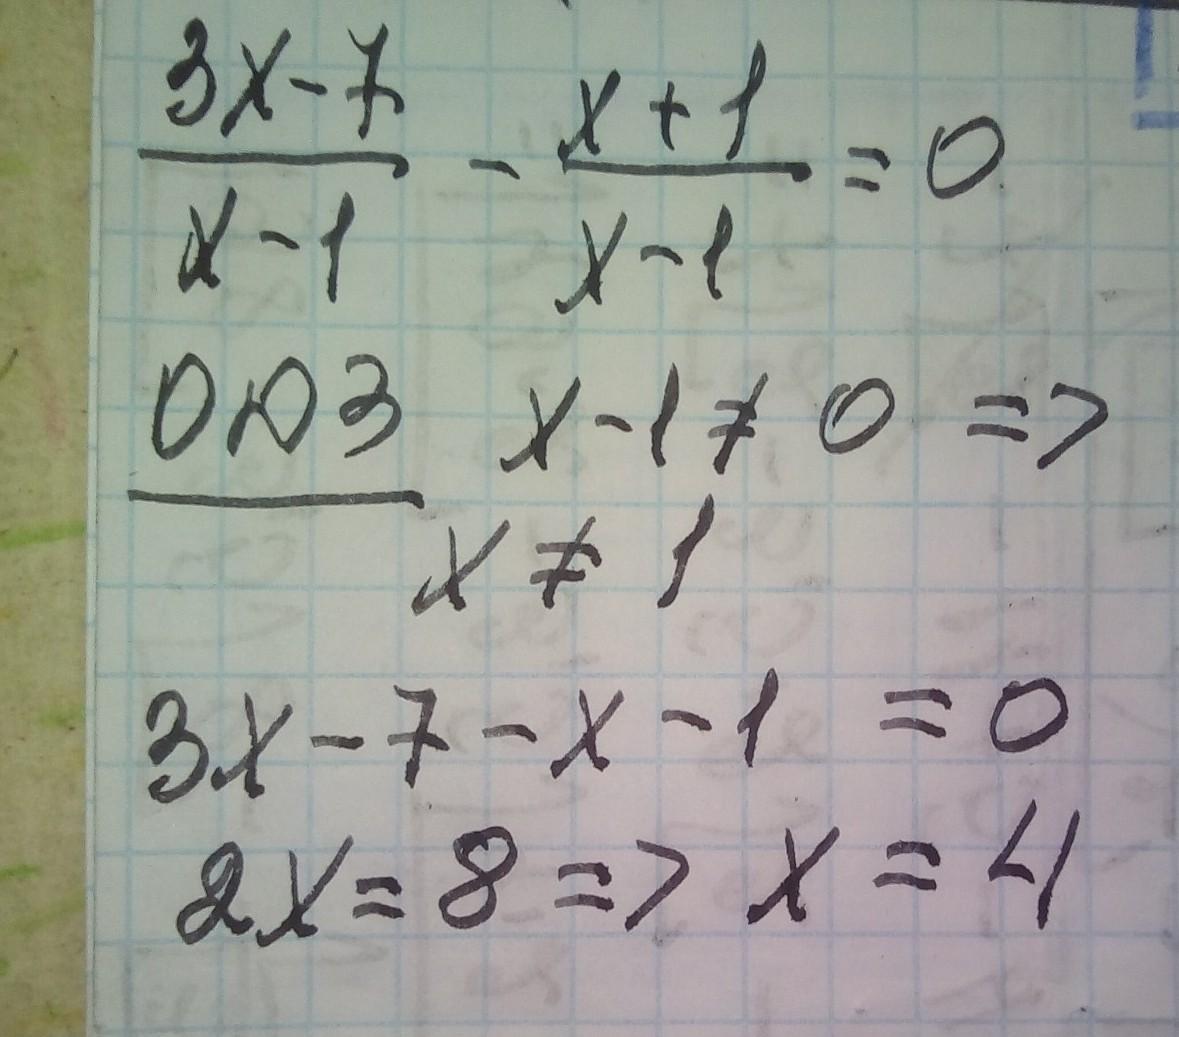 3x-7 / x-1 - x+1 / x-1 = 0
ОДЗ x-1 ≠ 0 =>
x ≠ 1
3x-7-x-1 = 0
2x = 8 => x = 4